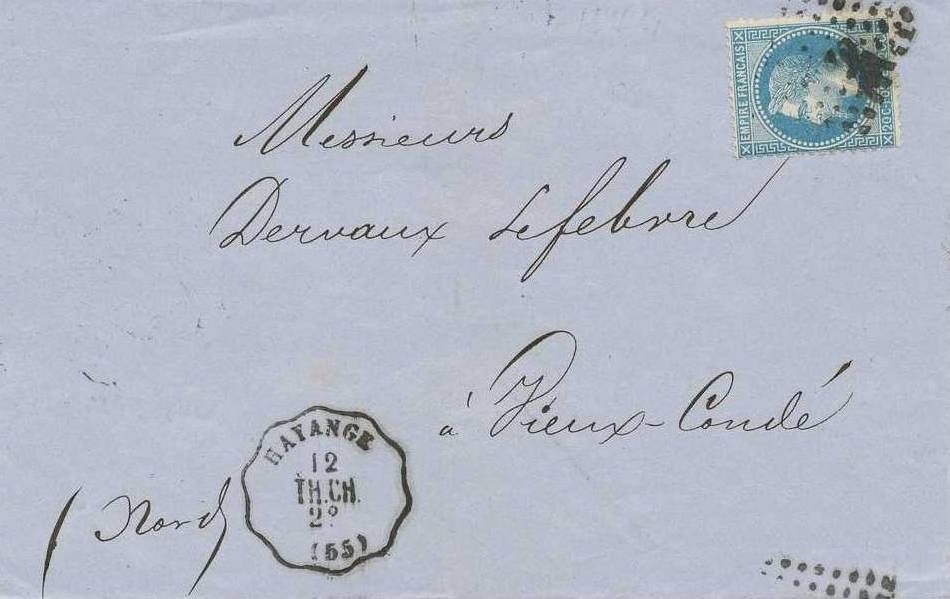 EMPIRE FRANÇAIS
20 C
Messieurs
Dervaux Lefebvre
à Vieux-Condé
(Nord)
HAYANGE
12
TH.CH.
2º
(55)